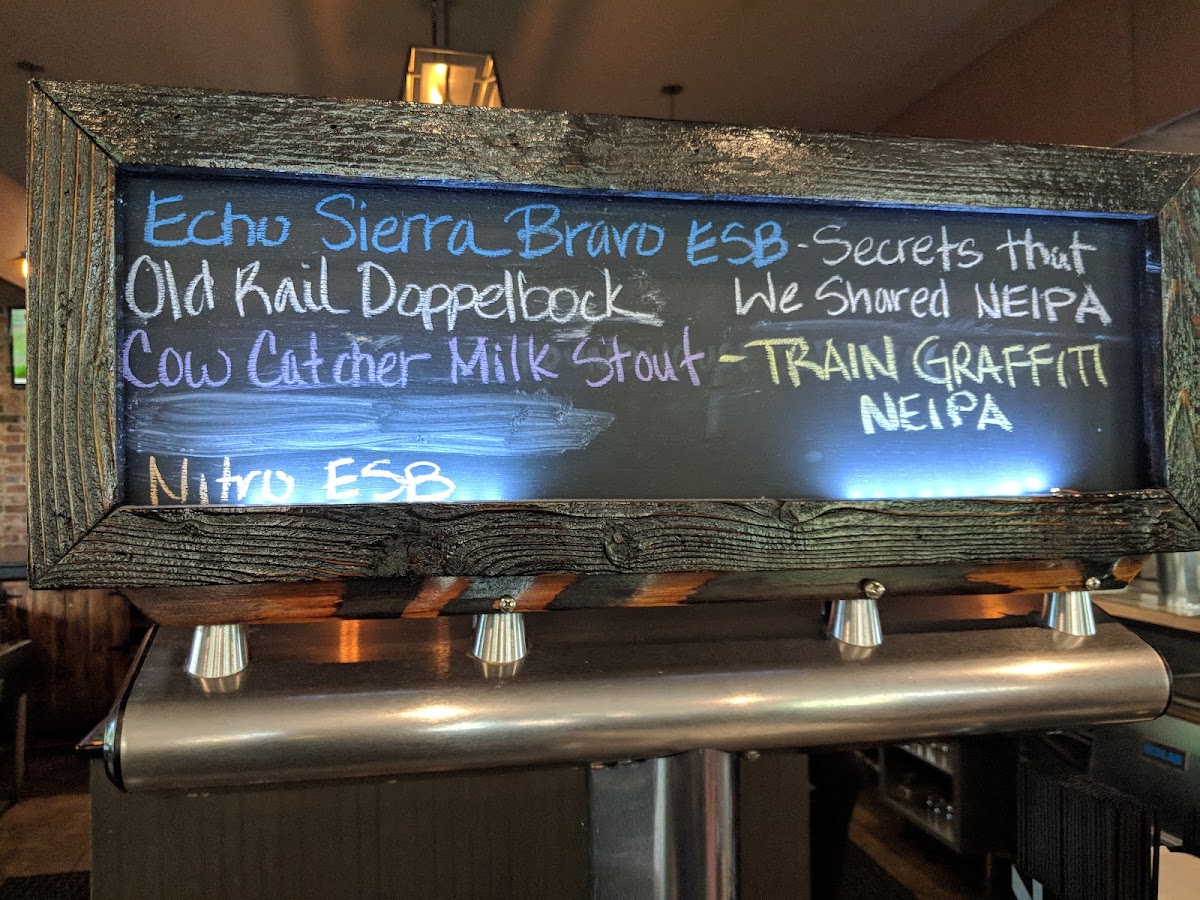 Echo Sierra Bravo ESB
Old Rail Doppelbock
Cow Catcher Milk Stout
Nitro ESB
- Secrets that
We Shared NEIPA
- TRAIN GRAFFITI
NEIPA